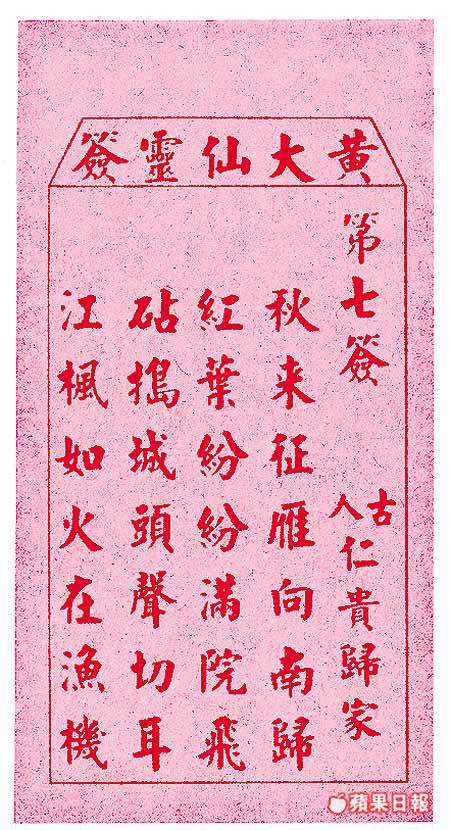 黄大仙靈簽
第七簽
古人仁貴歸家
秋来征雁向南歸
紅葉紛紛滿院飛
砧搗城頭聲切耳
江楓如火在漁機
蘋果日報